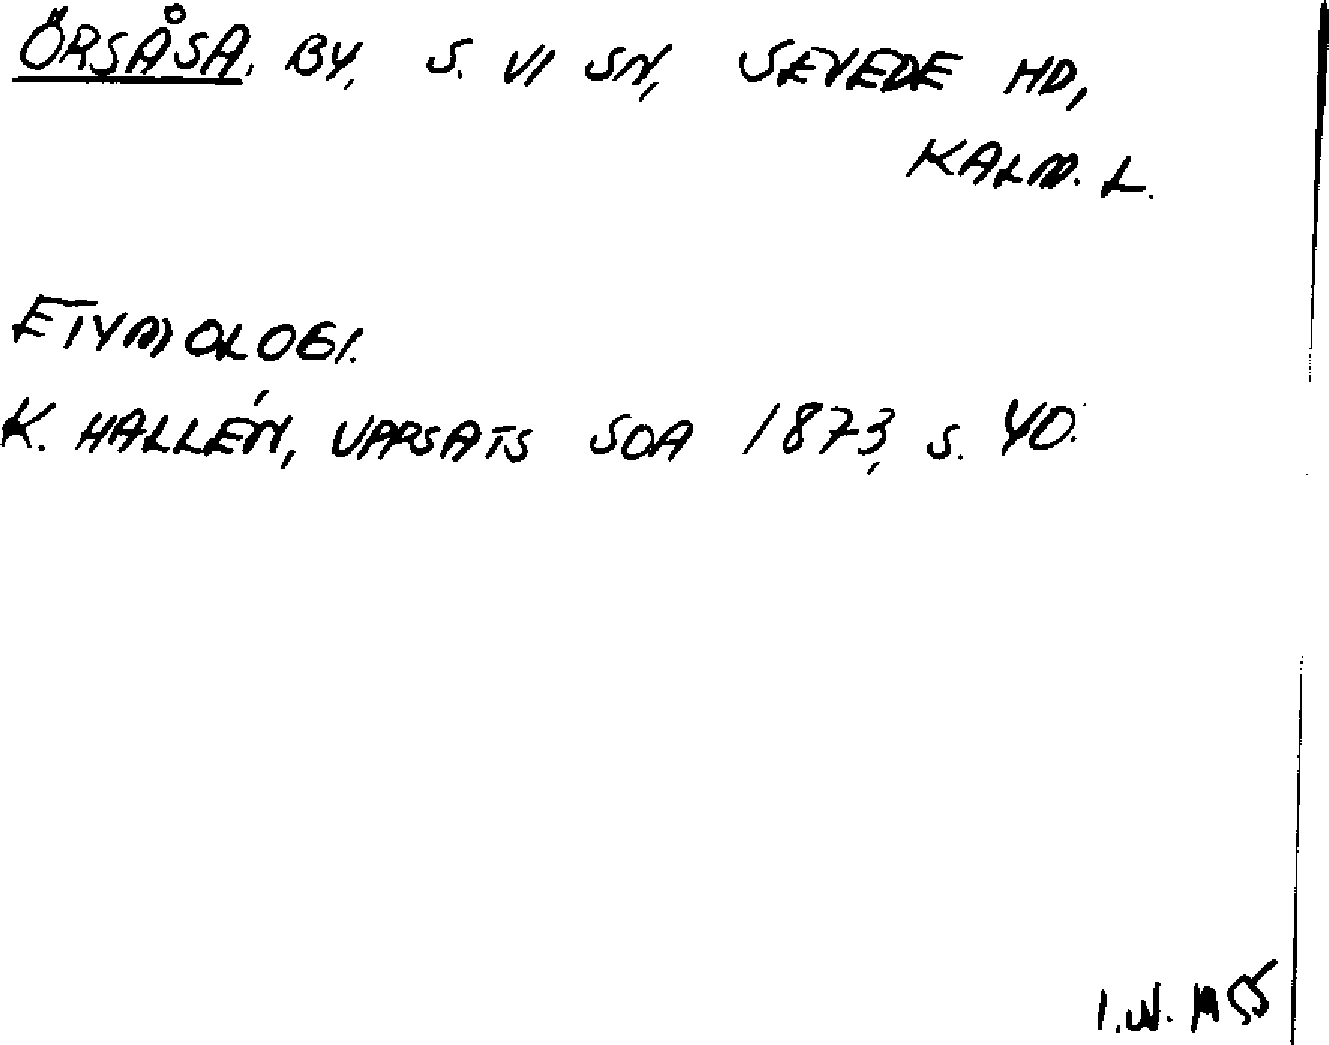 ÖRSÅSA, BY, S. VI SN, SEVEDE HD,
KALM. L.
ETYMOLOGI.
K. HALLÉN, UPPSATS SOA 1873, S. 40.
I.W.